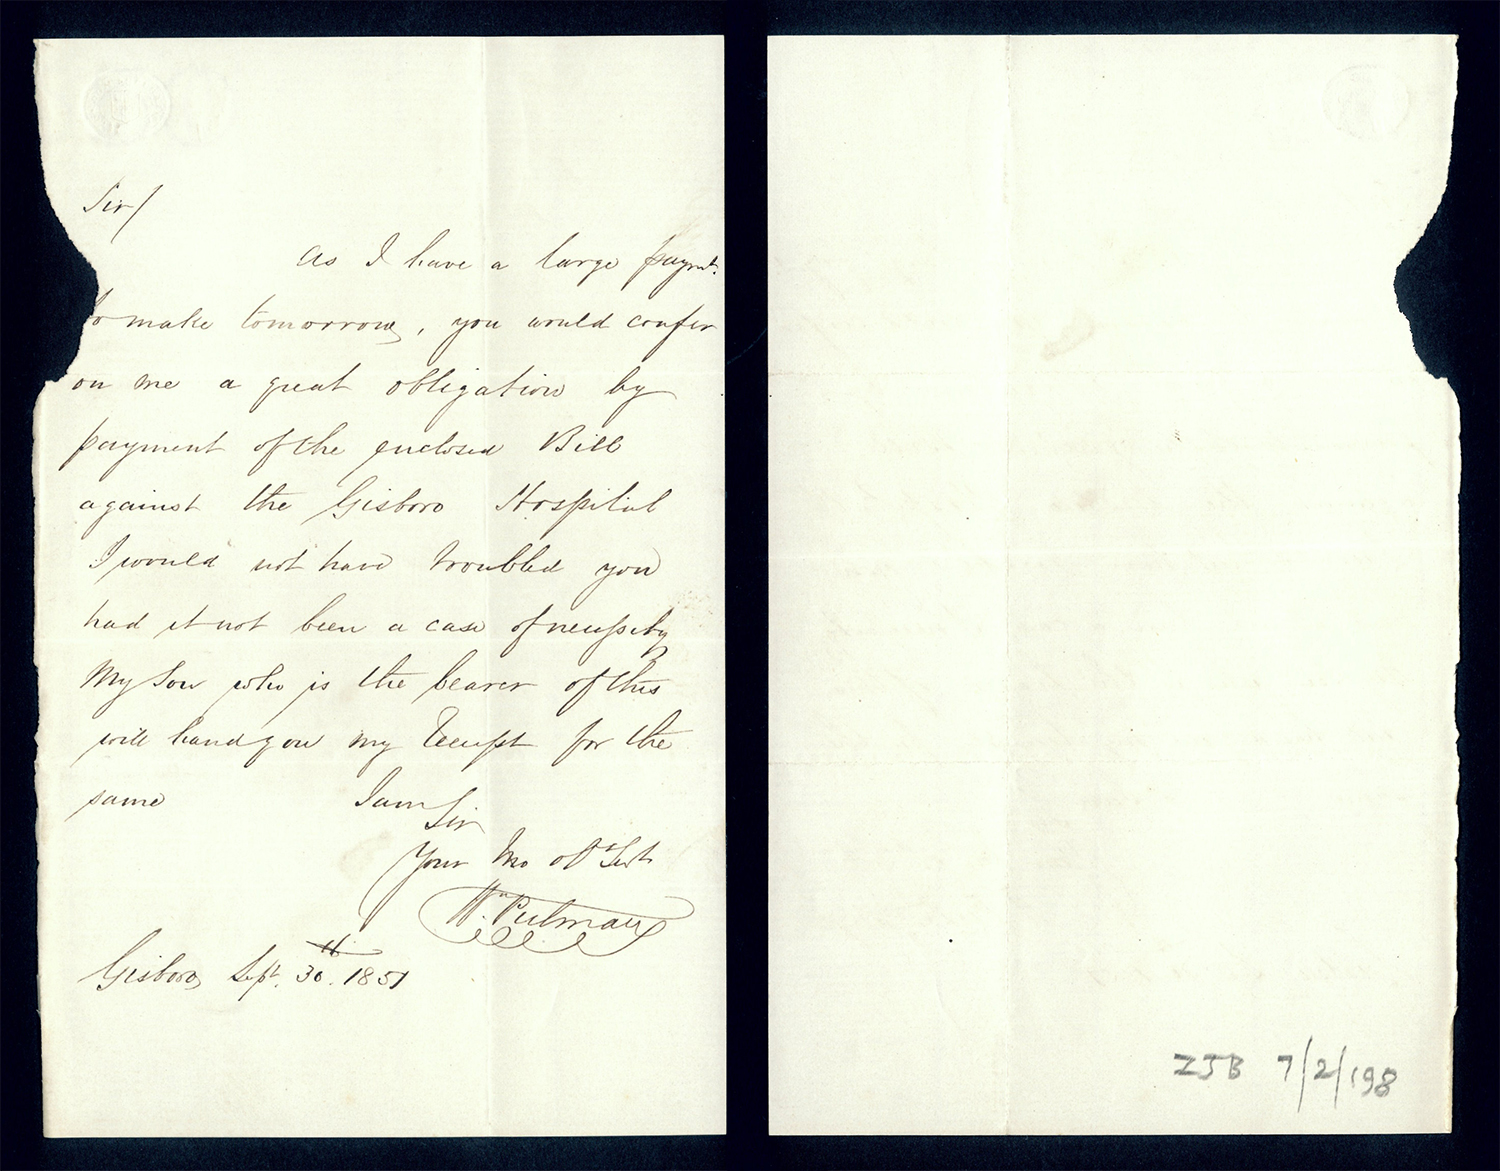 Sir/
As I have a large paymt.
to make tomorrow, you would confer
on me a great obligation by
payment of the enclosed Bill
against the Gisboro Hospital
I would not have troubled you
had it not been a case of necessity
My Son who is the bearer of this
will hand you my Receipt for the
same I am
Sir
Your Mo obt Servt
Wm. Pulman
Gisboro Sept. 30th. 1851
ZJB 7/2/198